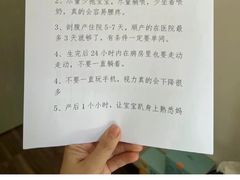 2、尽量少抱宝宝，尽量躺喂，少坐着喂
奶，真的会容易腰疼。
3、剖腹产住院 5-7 天，顺产的在医院最
多 3 天就够了，有条件一定要单间。
4、生完后 24 小时内在病房里也要走动
走动，不要一直躺着。
4、不要一直玩手机，视力真的会下降很
多
5、产后 1 个小时，让宝宝趴身上熟悉妈